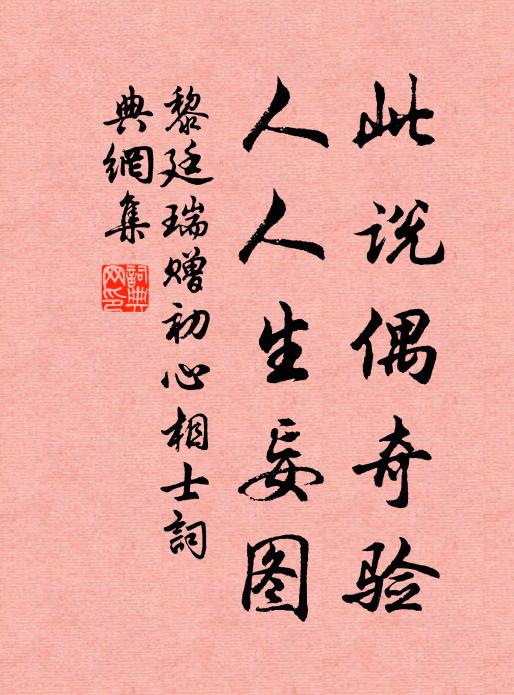 此说偶奇验
人人生妄图
黎廷瑞赠初心相士詞
典網集
詞典网印